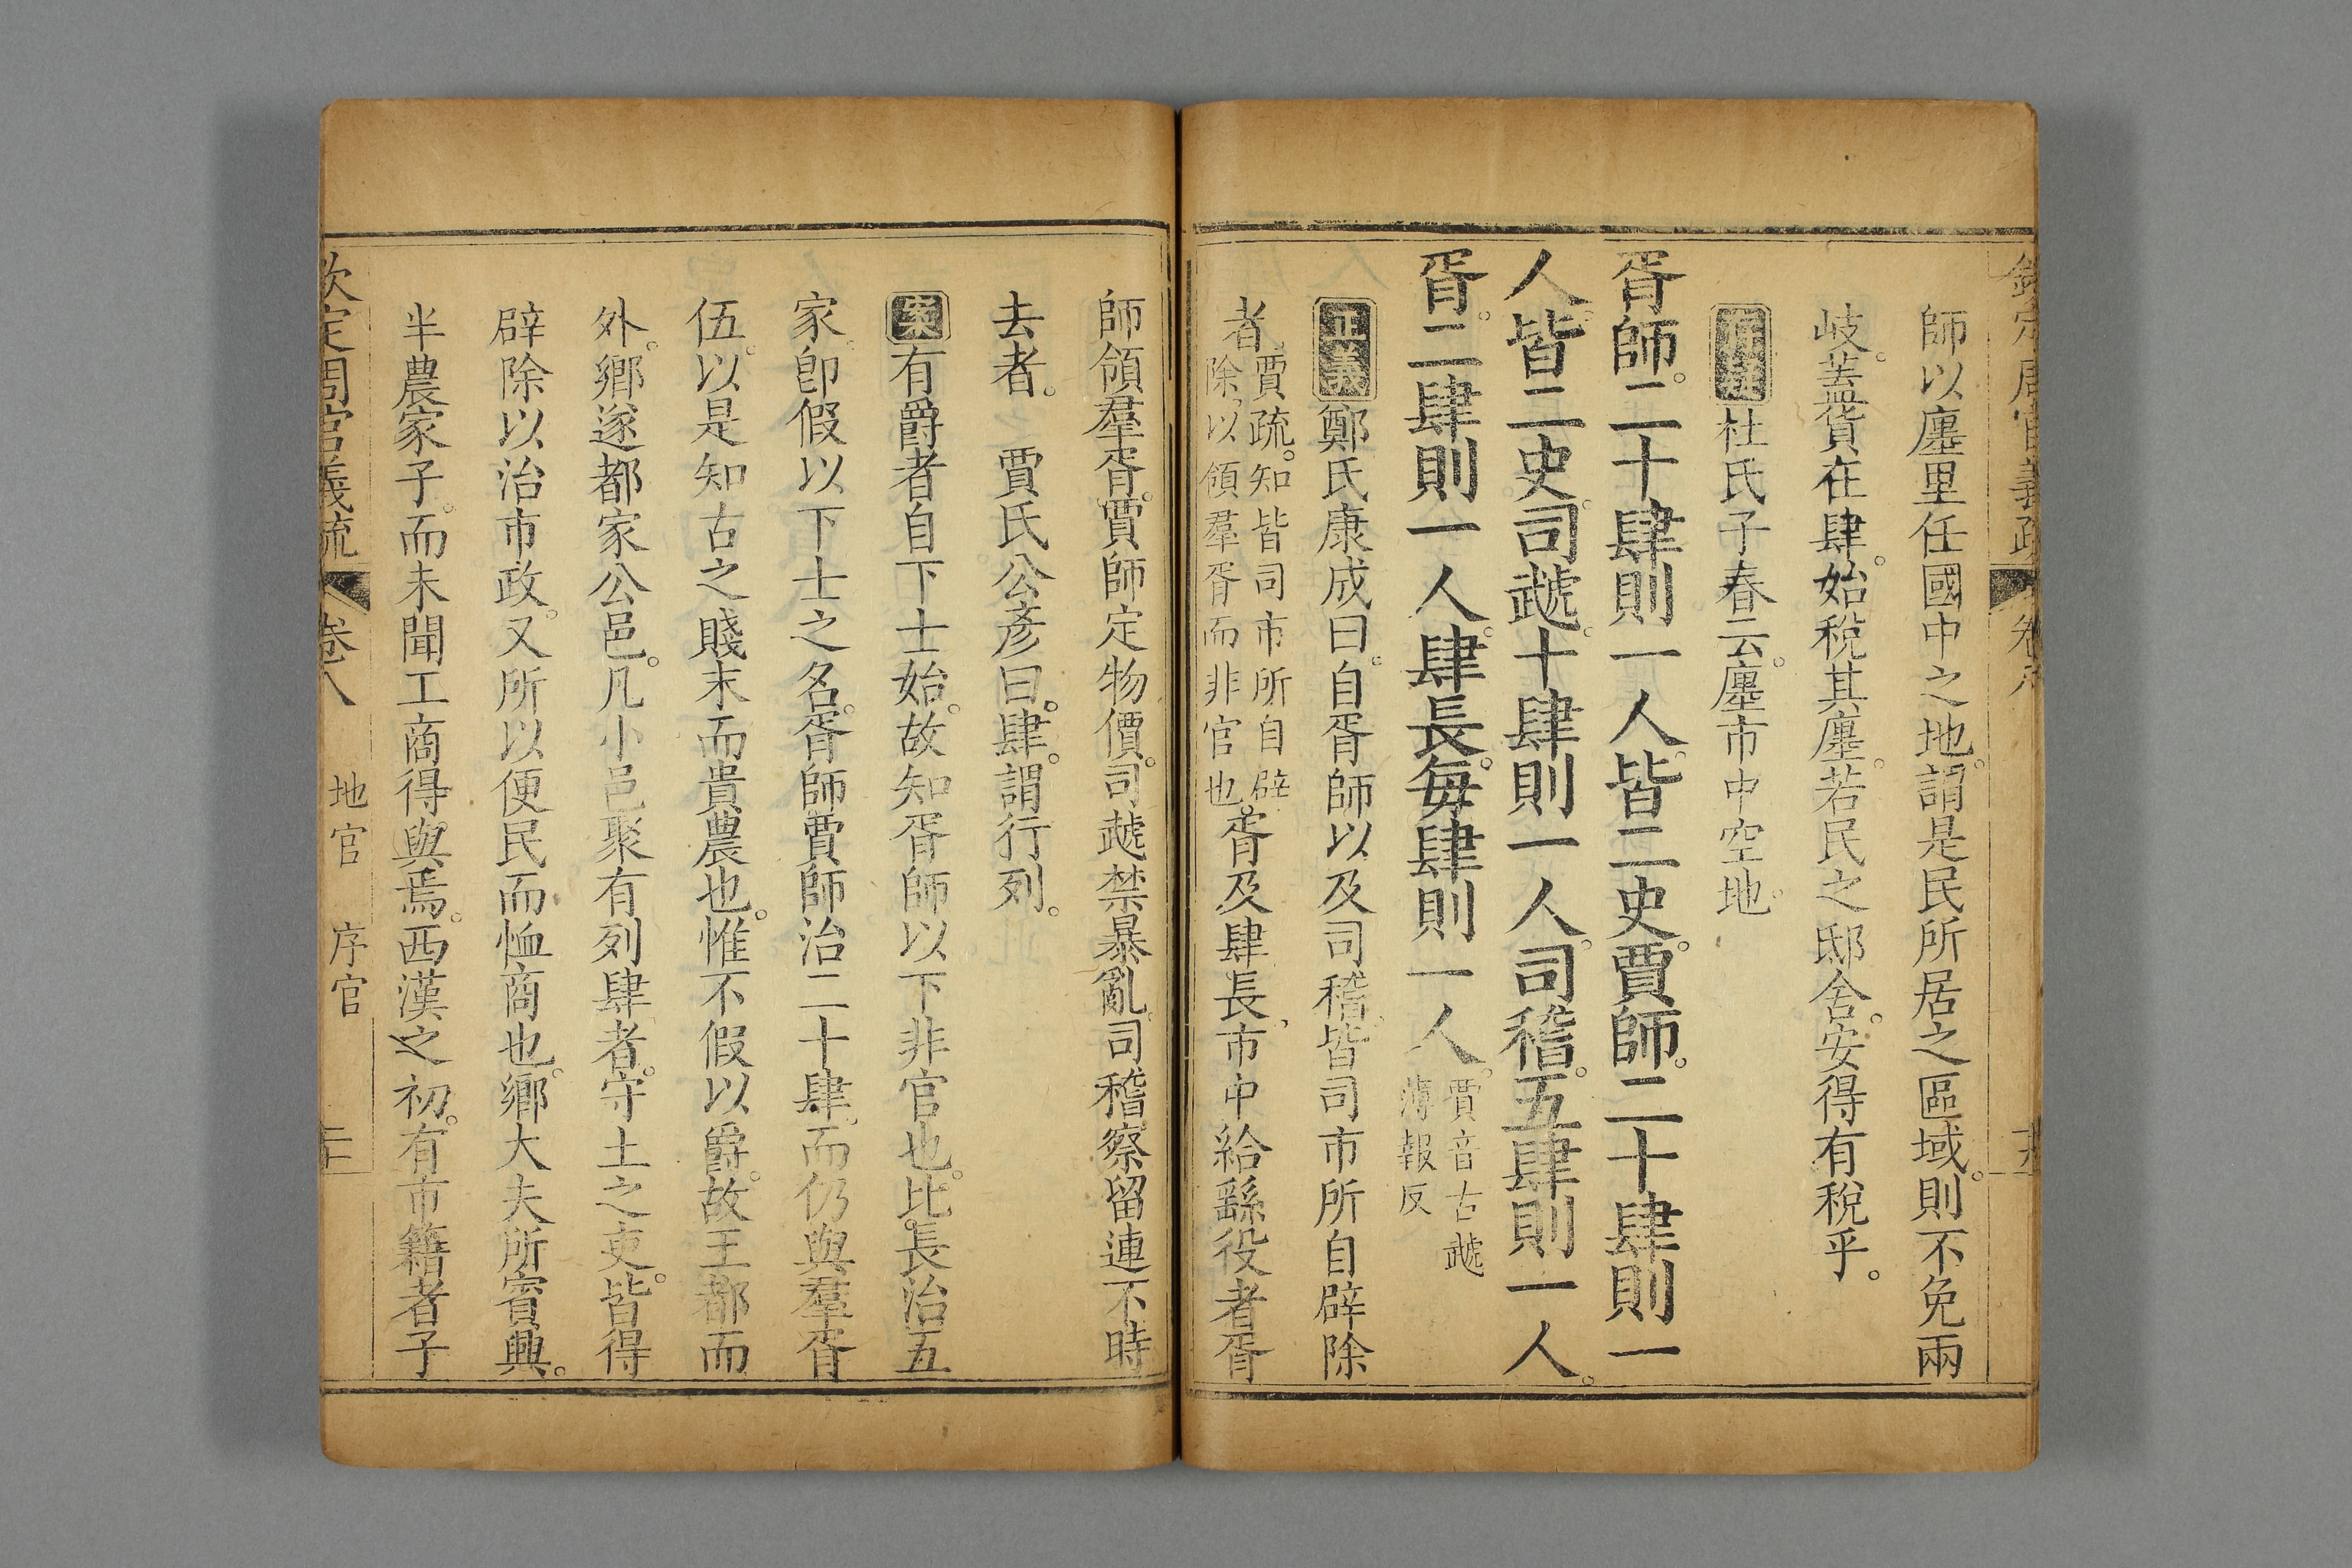 師以廛里任國中之地。謂是民所居之區域。則不免兩
岐。蓋貨在肆。始稅其廛。若民之邸舍。安得有稅乎。
存疑杜氏子春云。廛市中空地。
胥師。二十肆則一人。皆二史。賈師。二十肆則一
人。皆二史。司虣。十肆則一人。司稽。五肆則一人。
胥。二肆則一人。肆長。每肆則一人。賈音古虣
薄報反
正義鄭氏康成曰。自胥師以及司稽。皆司市所自辟除
者、賈疏。知皆司市所自辟
除、以領羣胥而非官也。胥及肆長、市中給繇役者胥
師領羣胥。賈師定物價。司虣禁暴亂。司稽察留連不時
去者。 賈氏公彥曰。肆。謂行列。
案有爵者自下士始。故知胥師以下非官也。比長治五
家。卽假以下士之名。胥師賈師治二十肆。而仍與羣胥
伍。以是知古之賤末而貴農也。惟不假以爵。故王都而
外。鄉遂都家公邑。凡小邑聚有列肆者。守土之吏。皆得
辟除以治市政。又所以便民而恤商也。鄉大夫所賓興。
半農家子。而未聞工商得與焉。西漢之初。有市籍者子
欽定周官義疏 卷八 地官 序官